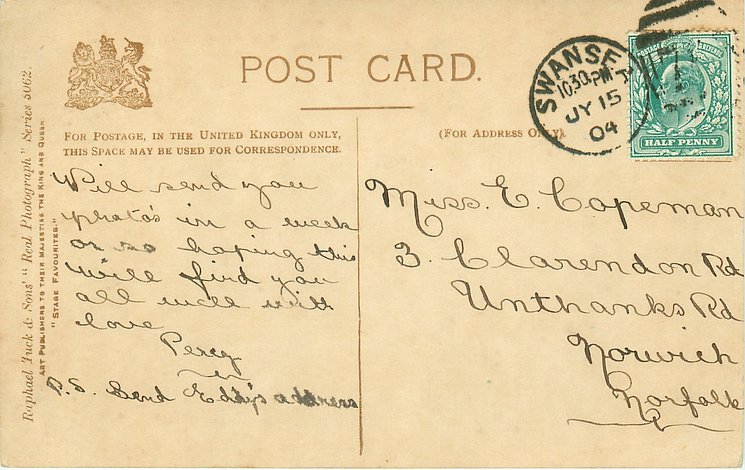 POST CARD.
FOR POSTAGE, IN THE UNITED KINGDOM ONLY,
THIS SPACE MAY BE USED FOR CORRESPONDENCE.
(FOR ADDRESS ONLY)
SWANSE
10.30PM
JY 15
04
HALF PENNY
Will send you
photo's in a week
or so hoping this
will find you
all well with
love
Percy
P.S. Send Eddy's address
Miss. E. Copeman
3. Clarendon Rd
Unthanks Rd
Norwich
Norfolk
Raphael Tuck & Sons' "Real Photograph" Series 5062.
ART PUBLISHERS TO THEIR MAJESTIES THE KING AND QUEEN.
"STAGE FAVOURITES."